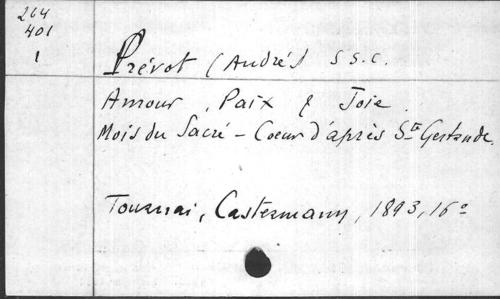 264
401
1
Prévot (André) S S.C.
Amour, Paix & Joie.
Mois du Sacré-Coeur d'après Ste Gertrude.
Tournai, Castermann, 1893, 16°